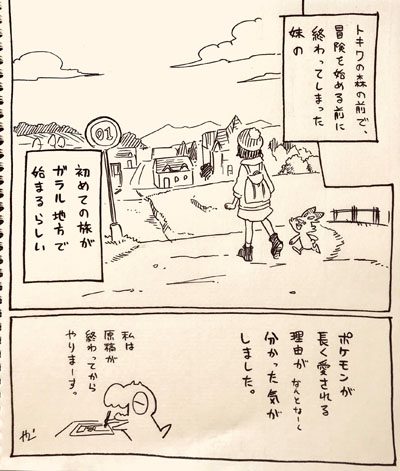 トキワの森の前で、
冒険を始める前に
終わってしまった
妹の
01
初めての旅が
ガラル地方で
始まるらしい
ポケモンが
長く愛される
理由がなんとなーく
分かった気が
しました。
私は
原稿が
終わってから
やりまーす。